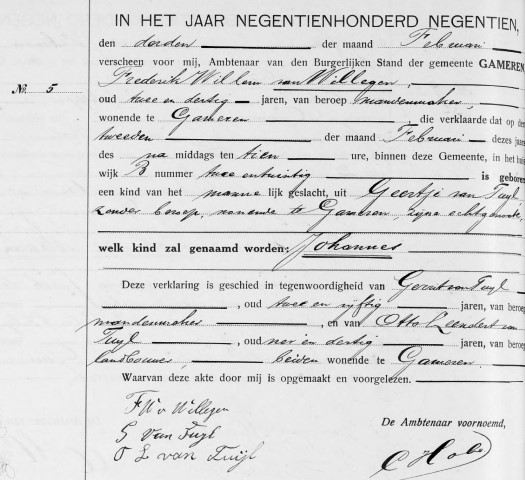 IN HET JAAR NEGENTIENHONDERD NEGENTIEN,
den derden der maand Februari
verscheen voor mij, Ambtenaar van den Burgerlijken Stand der gemeente GAMEREN
No. 5 Frederik Willem van Willegen,
oud twee en dertig jaren, van beroep mandenmaker,
wonende te Gameren, die verklaarde dat op den
tweeden der maand Februari dezes jaars
des na middags ten tien ure, binnen deze Gemeente, in het huis
wijk B nummer twee en twintig is geboren
een kind van het manne lijk geslacht, uit Geertje van Tuyl,
zonder beroep, wonende te Gameren, zijne echtgenoote,
welk kind zal genaamd worden: Johannes
Deze verklaring is geschied in tegenwoordigheid van Gerrit van Tuyl
, oud twee en vijftig jaren, van beroep
mandenmaker, en van Otto Leendert van
Tuyl, oud vier en dertig jaren, van beroep
landbouwer, beiden wonende te Gameren.
Waarvan deze akte door mij is opgemaakt en voorgelezen.
F W v Willegen
G van Tuyl
O L van Tuijl
De Ambtenaar voornoemd,
C